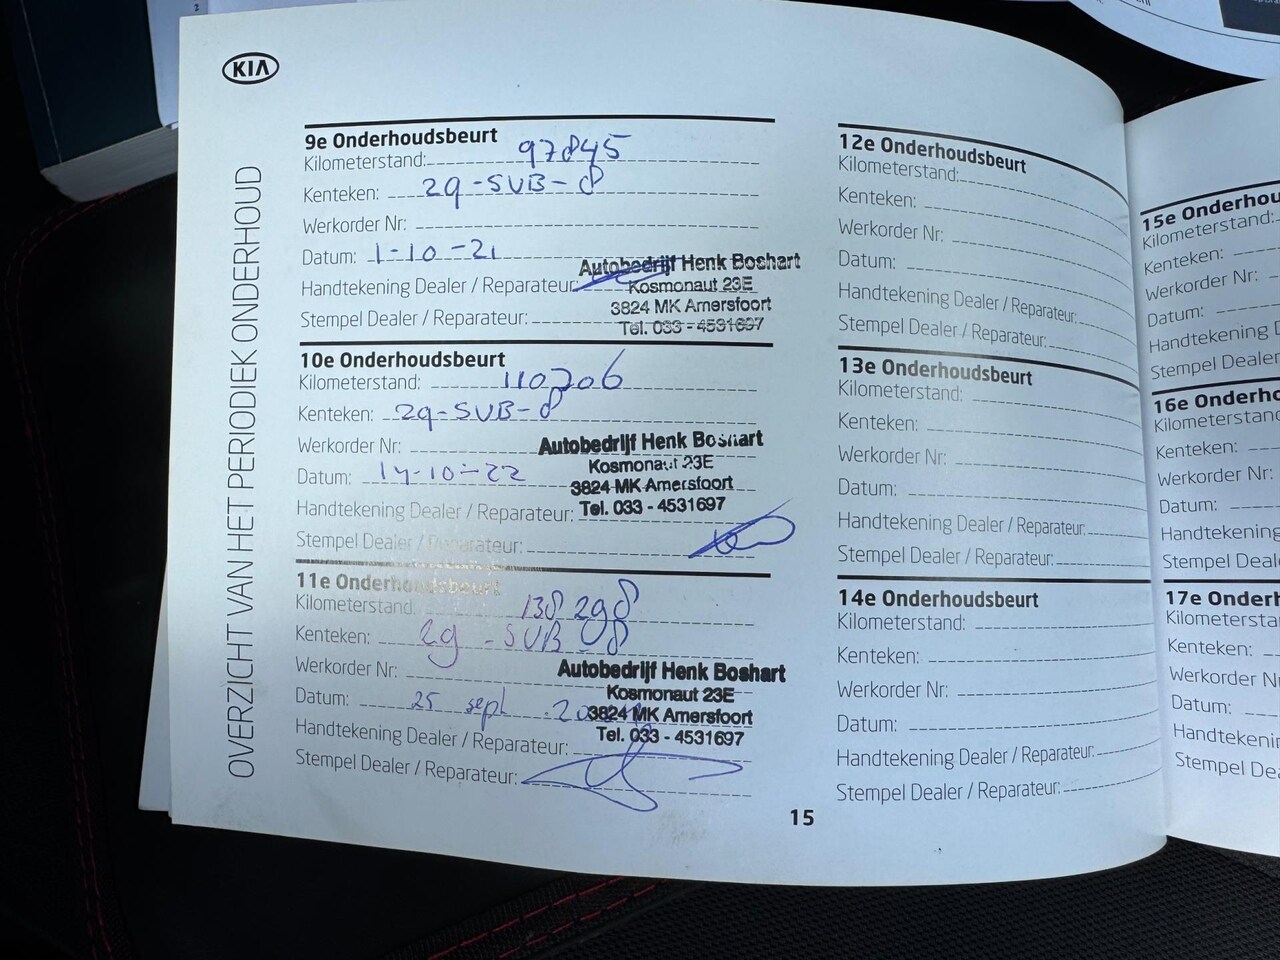 KIA
OVERZICHT VAN HET PERIODIEK ONDERHOUD
9e Onderhoudsbeurt
Kilometerstand: 97845
Kenteken: 29-SVB-8
Werkorder Nr:
Datum: 1-10-21
Handtekening Dealer / Reparateur:
Stempel Dealer / Reparateur:
Autobedrijf Henk Boshart
Kosmonaut 23E
3824 MK Amersfoort
Tel. 033 - 4531697
10e Onderhoudsbeurt
Kilometerstand: 110206
Kenteken: 29-SVB-8
Werkorder Nr:
Datum: 14-10-22
Handtekening Dealer / Reparateur:
Stempel Dealer / Reparateur:
Autobedrijf Henk Boshart
Kosmonaut 23E
3824 MK Amersfoort
Tel. 033 - 4531697
11e Onderhoudsbeurt
Kilometerstand: 138298
Kenteken: 29-SVB 8
Werkorder Nr:
Datum: 25 sept
Handtekening Dealer / Reparateur:
Stempel Dealer / Reparateur:
Autobedrijf Henk Boshart
Kosmonaut 23E
3824 MK Amersfoort
Tel. 033 - 4531697
12e Onderhoudsbeurt
Kilometerstand:
Kenteken:
Werkorder Nr:
Datum:
Handtekening Dealer / Reparateur:
Stempel Dealer / Reparateur:
13e Onderhoudsbeurt
Kilometerstand:
Kenteken:
Werkorder Nr:
Datum:
Handtekening Dealer / Reparateur:
Stempel Dealer / Reparateur:
14e Onderhoudsbeurt
Kilometerstand:
Kenteken:
Werkorder Nr:
Datum:
Handtekening Dealer / Reparateur:
Stempel Dealer / Reparateur:
15
15e Onderhou
Kilometerstand:
Kenteken:
Werkorder Nr:
Datum:
Handtekening D
Stempel Dealer
16e Onderho
Kilometerstand
Kenteken:
Werkorder Nr:
Datum:
Handtekening
Stempel Deale
17e Onderh
Kilometersta
Kenteken:
Werkorder N
Datum:
Handtekenin
Stempel Dea